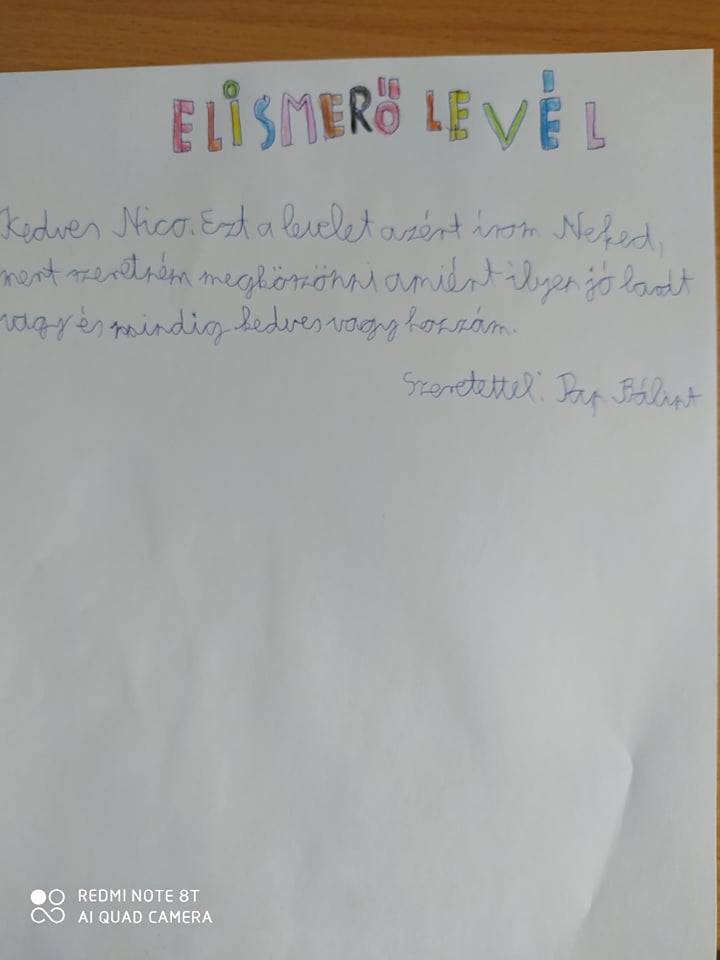 ELISMERŐ LEVÉL
Kedves Nico. Ezt a levelet azért írom Neked,
mert szeretném megköszönni amiért ilyen jó barát
vagy és mindig kedves vagy hozzám.
Szeretettel: Pap Bálint
REDMI NOTE 8T
AI QUAD CAMERA